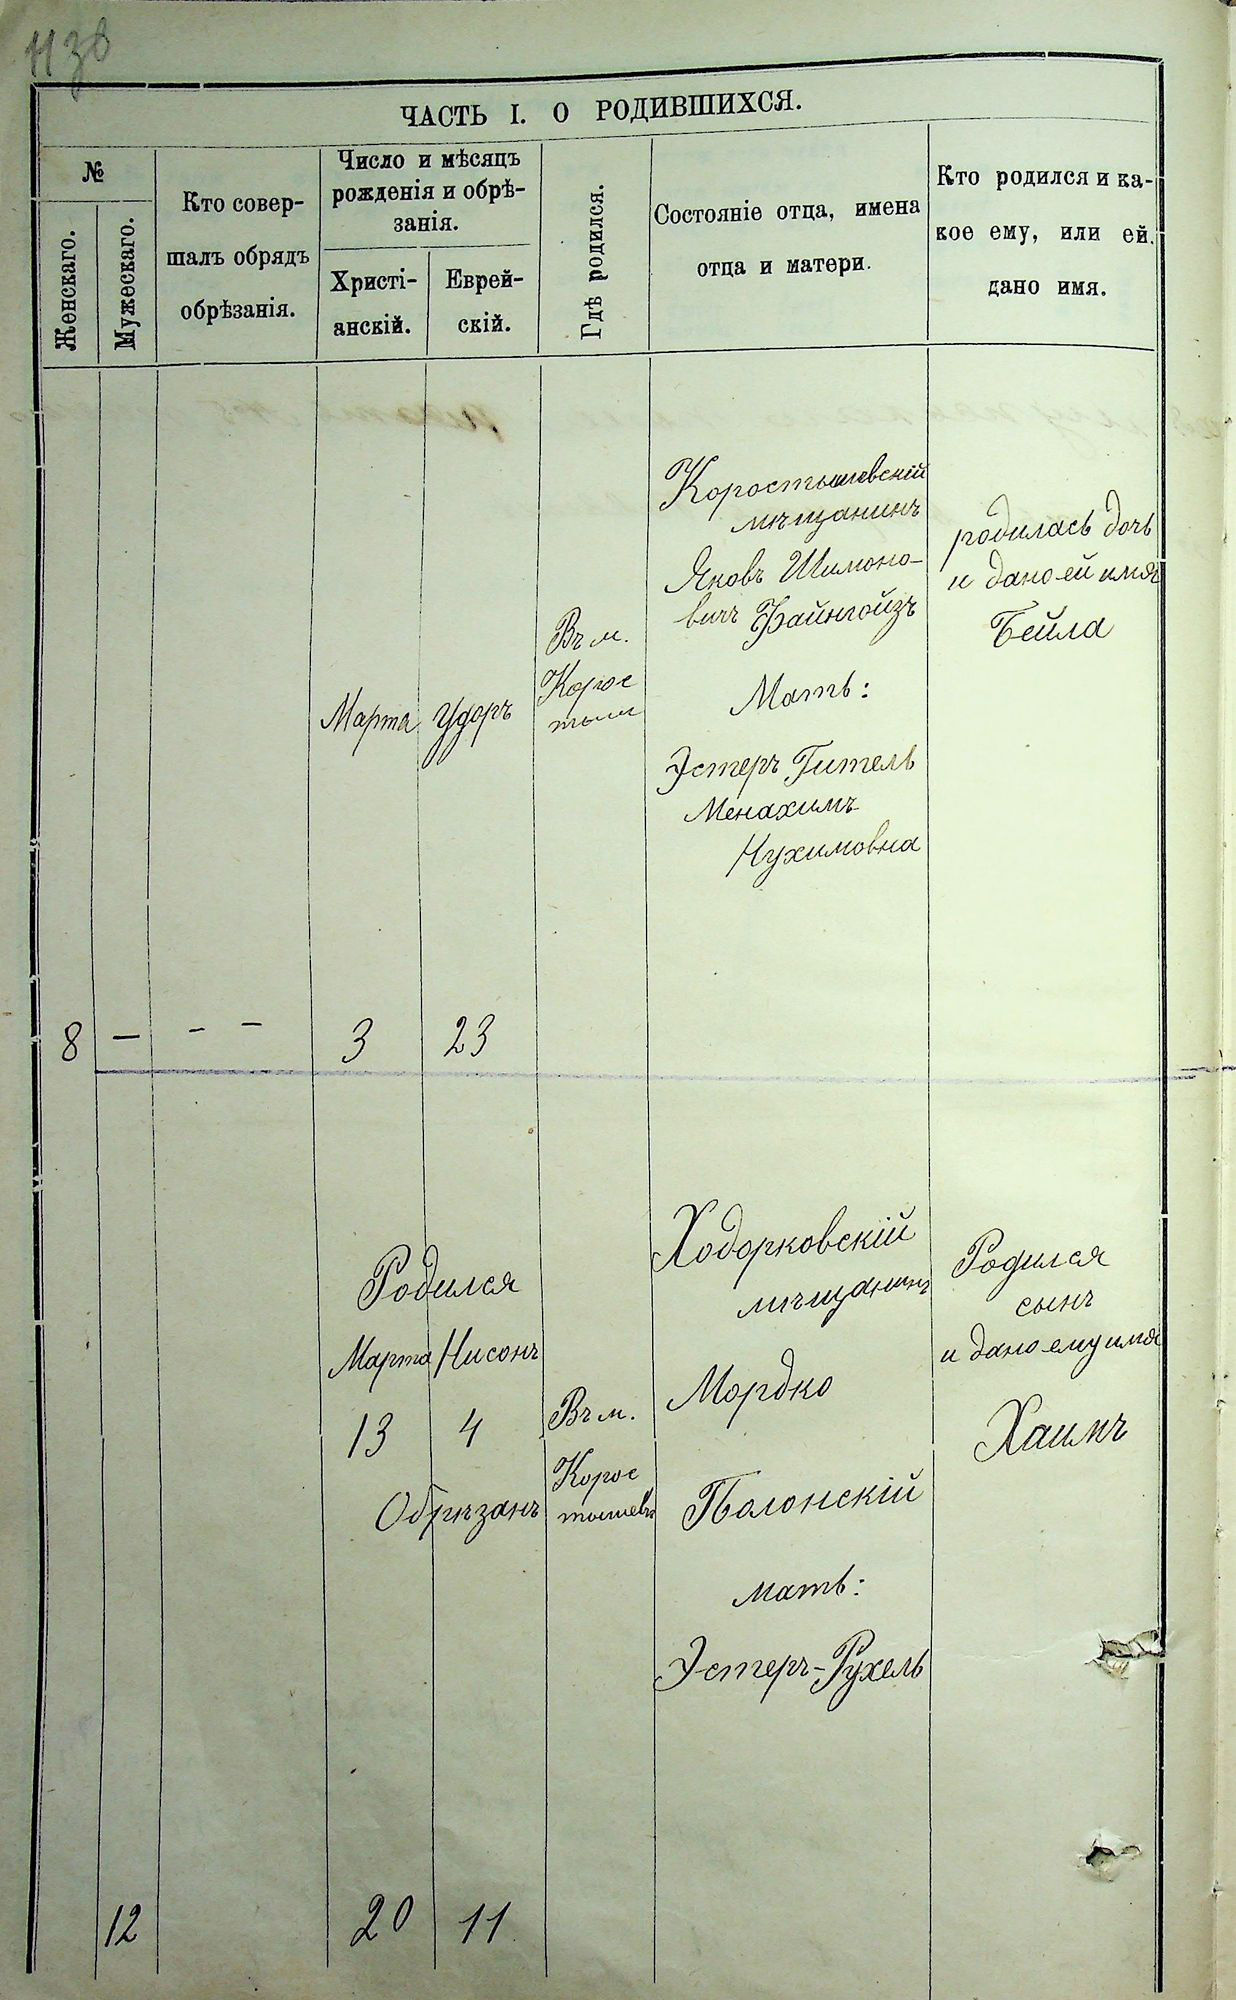 ЧАСТЬ I. О РОДИВШИХСЯ.
№
Женскаго.
Мужескаго.
Кто совер-
шалъ обрядъ
обрѣзанія.
Число и мѣсяцъ
рожденія и обрѣ-
занія.
Христі-
анскій.
Еврей-
скій.
Гдѣ родился.
Состояніе отца, имена
отца и матери.
Кто родился и ка-
кое ему, или ей
дано имя.
8
—
— —
Марта
3
Удоръ
23
Въ м.
Корос
тыш
Коростышевскій
мѣщанинъ
Яковъ Шимоно-
вичъ Файнгойзъ
Мать:
Эстеръ Гитель
Менахимъ
Нухимовна
родилась дочь
и дано ей имя
Бейла
12
Родился
Марта Нисонъ
13 4
Обрѣзанъ
20 11
Въ м.
Корос
тышевѣ
Ходорковскій
мѣщанинъ
Мордко
Полонскій
мать:
Эстеръ-Рухель
Родился
сынъ
и дано ему имя
Хаимъ